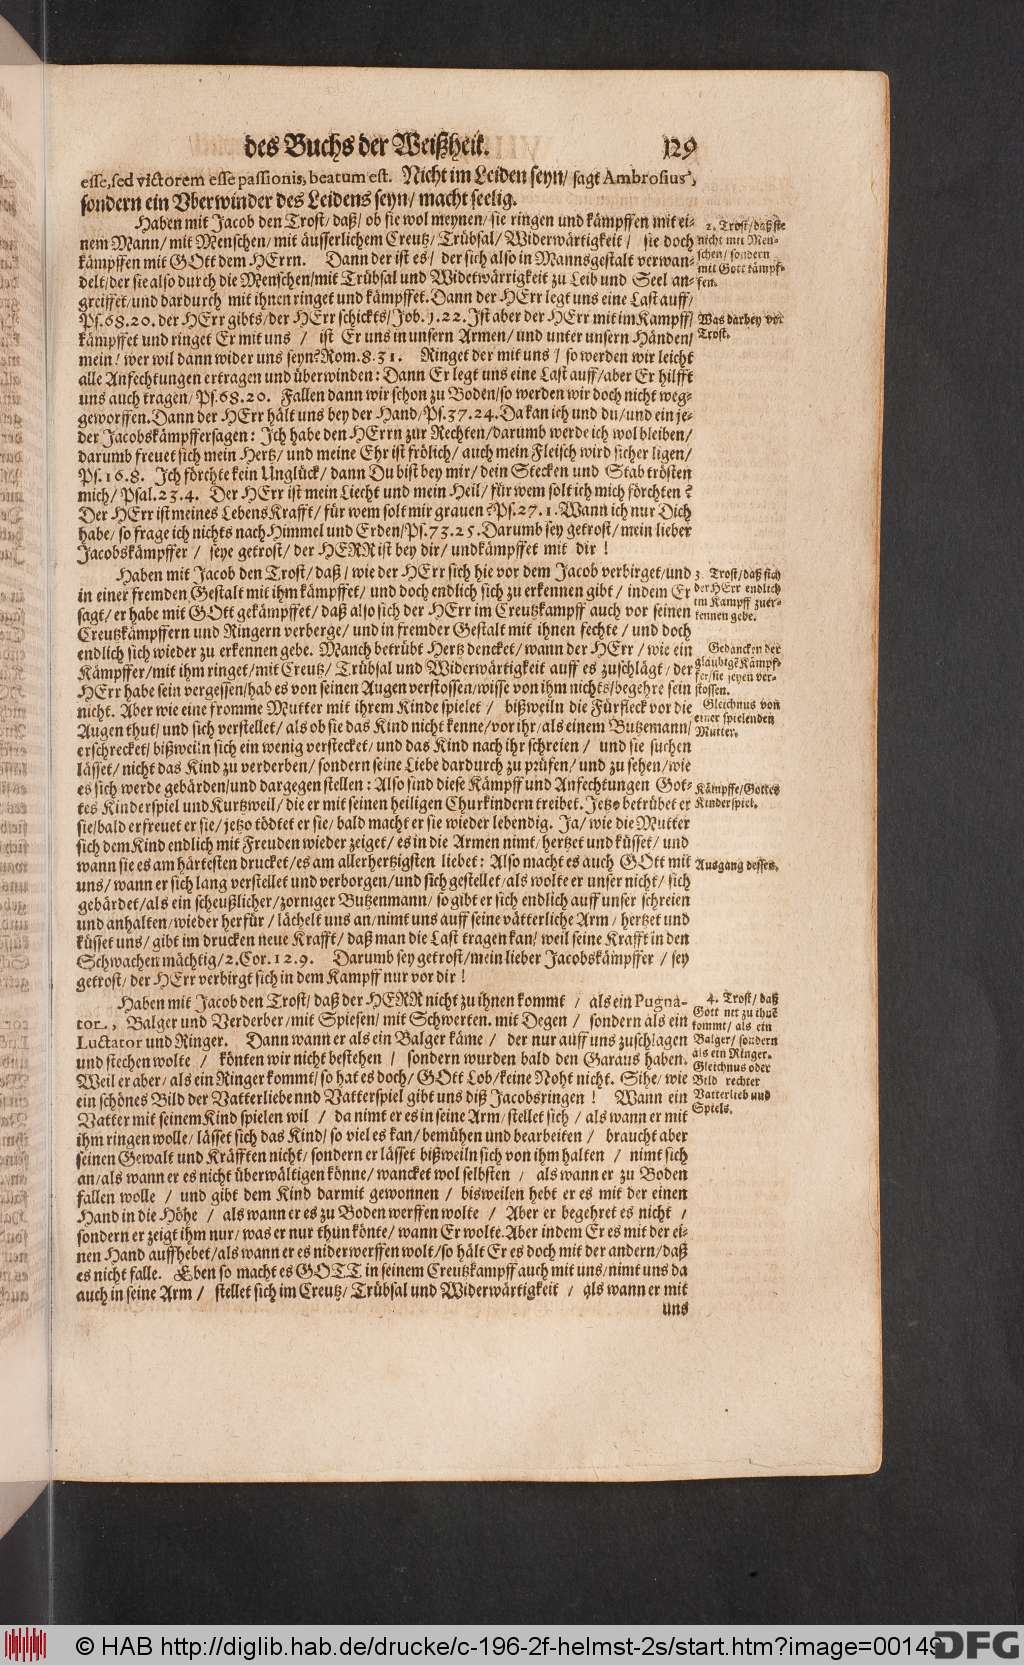 des Buchs der Weißheit. 129
esse, sed victorem esse passionis, beatum est. Nicht im Leiden seyn/ sagt Ambrosius,
sondern ein Vberwinder des Leidens seyn/ macht seelig.
Haben mit Jacob den Trost/ daß/ ob sie wol meynen/ sie ringen und kämpffen mit ei-
nem Mann/ mit Menschen/ mit äusserlichem Creutz/ Trübsal/ Widerwärtigkeit/ sie doch
kämpffen mit GOtt dem HErrn. Dann der ist es/ der sich also in Mannsgestalt verwan-
delt/ der sie also durch die Menschen/ mit Trübsal und Widerwärrigkeit zu Leib und Seel an-
greiffet/ und dardurch mit ihnen ringet und kämpffet. Dann der HErr legt uns eine Last auff/
Ps. 68. 20. der HErr gibts/ der HErr schickts/ Job. 1. 22. Ist aber der HErr mit im Kampff/
kämpffet und ringet Er mit uns / ist Er uns in unsern Armen/ und unter unsern Händen/
mein! wer wil dann wider uns seyn? Rom. 8. 31. Ringet der mit uns / so werden wir leicht
alle Anfechtungen ertragen und überwinden: Dann Er legt uns eine Last auff/ aber Er hilfft
uns auch tragen/ Ps. 68. 20. Fallen dann wir schon zu Boden/ so werden wir doch nicht weg-
geworffen. Dann der HErr hält uns bey der Hand/ Ps. 37. 24. Da kan ich und du/ und ein je-
der Jacobskämpffer sagen: Ich habe den HErrn zur Rechten/ darumb werde ich wol bleiben/
darumb freuet sich mein Hertz/ und meine Ehr ist frölich/ auch mein Fleisch wird sicher ligen/
Ps. 16. 8. Ich förchte kein Unglück/ dann Du bist bey mir/ dein Stecken und Stab trösten
mich/ Psal. 23. 4. Der HErr ist mein Liecht und mein Heil/ für wem solt ich mich förchten?
Der HErr ist meines Lebens Krafft/ für wem solt mir grauen? Ps. 27. 1. Wann ich nur Dich
habe/ so frage ich nichts nach Himmel und Erden/ Ps. 73. 25. Darumb sey getrost/ mein lieber
Jacobskämpffer / seye getrost/ der HERR ist bey dir/ und kämpffet mit dir!
2. Trost/ daß sie
nicht mit Men-
schen/ sondern
mit Gott kämpf-
fen.
Was darbey vor
Trost.
Haben mit Jacob den Trost/ daß/ wie der HErr sich hie vor dem Jacob verbirget/ und
in einer fremden Gestalt mit ihm kämpffet/ und doch endlich sich zu erkennen gibt/ indem Er
sagt/ er habe mit GOtt gekämpffet/ daß also sich der HErr im Creutzkampff auch vor seinen
Creutzkämpffern und Ringern verberge/ und in fremder Gestalt mit ihnen fechte / und doch
endlich sich wieder zu erkennen gebe. Manch betrübt Hertz dencket/ wann der HErr/ wie ein
Kämpffer/ mit ihm ringet/ mit Creutz/ Trübsal und Widerwärtigkeit auff es zuschlägt/ der
HErr habe sein vergessen/ hab es von seinen Augen verstossen/ wisse von ihm nichts/ begehre sein
nicht. Aber wie eine fromme Mutter mit ihrem Kinde spielet / bißweiln die Fürfleck vor die
Augen thut/ und sich verstellet/ als ob sie das Kind nicht kenne/ vor ihr/ als einem Butzemann/
erschrecket/ bißweiln sich ein wenig verstecket/ und das Kind nach ihr schreien / und sie suchen
lässet/ nicht das Kind zu verderben/ sondern seine Liebe dardurch zu prüfen/ und zu sehen/ wie
es sich werde gebärden/ und dargegen stellen: Also sind diese Kämpff und Anfechtungen Got-
tes Kinderspiel und Kurtzweil/ die er mit seinen heiligen Churkindern treibet. Jetzo betrübet er
sie/ bald erfreuet er sie/ jetzo tödtet er sie/ bald macht er sie wieder lebendig. Ja/ wie die Mutter
sich dem Kind endlich mit Freuden wieder zeiget/ es in die Armen nimt/ hertzet und küsset/ und
wann sie es am härtesten drucket/ es am allerhertzigsten liebet: Also macht es auch GOtt mit
uns/ wann er sich lang verstellet und verborgen/ und sich gestellet/ als wolte er unser nicht/ sich
gebärdet/ als ein scheußlicher/ zorniger Butzenmann/ so gibt er sich endlich auff unser schreien
und anhalten/ wieder herfür / lächelt uns an/ nimt uns auff seine vätterliche Arm / hertzet und
küsset uns/ gibt im drucken neue Krafft/ daß man die Last tragen kan/ weil seine Krafft in den
Schwachen mächtig/ 2. Cor. 12. 9. Darumb sey getrost/ mein lieber Jacobskämpffer / sey
getrost/ der HErr verbirgt sich in dem Kampff nur vor dir!
3. Trost/ daß sich
der HErr endlich
im Kampff zuer-
kennen gebe.
Gedancken der
gläubigē Kämpf-
fer/ sie seyen ver-
stossen.
Gleichnus von
einer spielenden
Mutter.
Kämpffe/ Gottes
Kinderspiel.
Ausgang dessen.
Haben mit Jacob den Trost/ daß der HERR nicht zu ihnen kommt / als ein Pugna-
tor, Balger und Verderber/ mit Spiesen/ mit Schwerten. mit Degen / sondern als ein
Luctator und Ringer. Dann wann er als ein Balger käme / der nur auff uns zuschlagen
und stechen wolte / könten wir nicht bestehen / sondern wurden bald den Garaus haben.
Weil er aber/ als ein Ringer kommt/ so hat es doch/ GOtt Lob/ keine Noht nicht. Sihe/ wie
ein schönes Bild der Vatterliebe nnd Vatterspiel gibt uns diß Jacobsringen! Wann ein
Vatter mit seinem Kind spielen wil / da nimt er es in seine Arm/ stellet sich / als wann er mit
ihm ringen wolle/ lässet sich das Kind/ so viel es kan/ bemühen und bearbeiten / braucht aber
seinen Gewalt und Kräfften nicht/ sondern er lässet bißweiln sich von ihm halten / nimt sich
an/ als wann er es nicht überwältigen könne/ wancket wol selbsten / als wann er zu Boden
fallen wolle / und gibt dem Kind darmit gewonnen / bisweilen hebt er es mit der einen
Hand in die Höhe / als wann er es zu Boden werffen wolte / Aber er begehret es nicht /
sondern er zeigt ihm nur/ was er nur thun könte/ wann Er wolte. Aber indem Er es mit der ei-
nen Hand auffhebet/ als wann er es niderwerffen wolt/ so hält Er es doch mit der andern/ daß
es nicht falle. Eben so macht es GOTT in seinem Creutzkampff auch mit uns/ nimt uns da
auch in seine Arm / stellet sich im Creutz/ Trübsal und Widerwärtigkeit / als wann er mit
uns
4. Trost/ daß
Gott net zu ihnē
kommt/ als ein
Balger/ sondern
als ein Ringer.
Gleichnus oder
Bild rechter
Vatterlieb und
Spiels.
© HAB http://diglib.hab.de/drucke/c-196-2f-helmst-2s/start.htm?image=00149
DFG